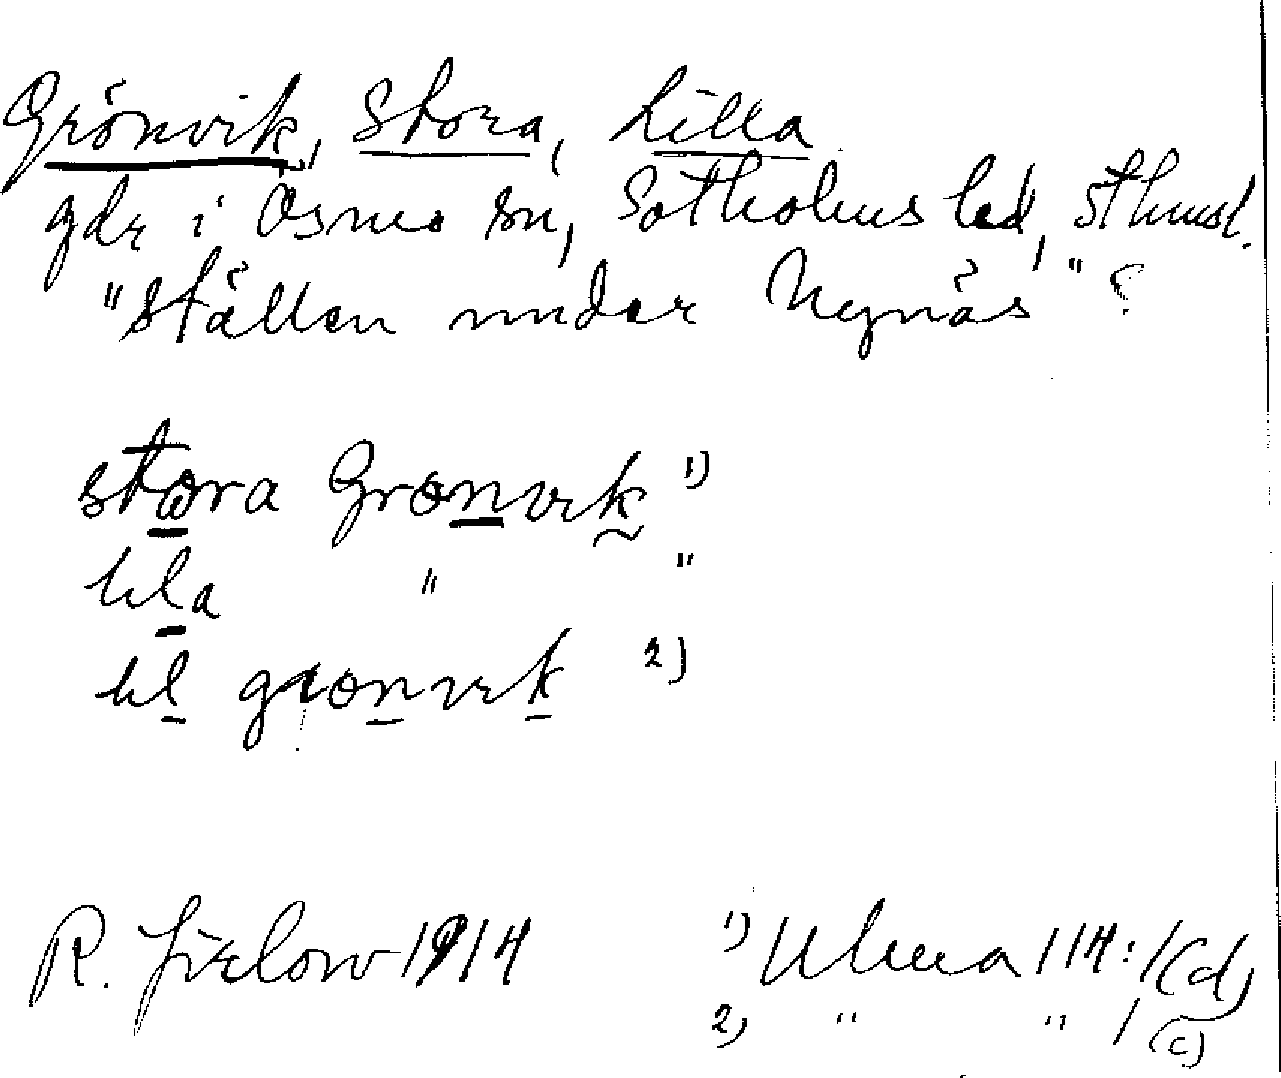 Grönvik, Stora, Lilla
gdr i Ösmo sn, Sotholms hd, Sthmsl.
"Ställen under Nynäs" ?
stωra Grөnvik 1)
lila " "
lil grөnvik 2)
R. Jirlow 1914
1) Ulma 114:1(d)
2) " " 1(c)